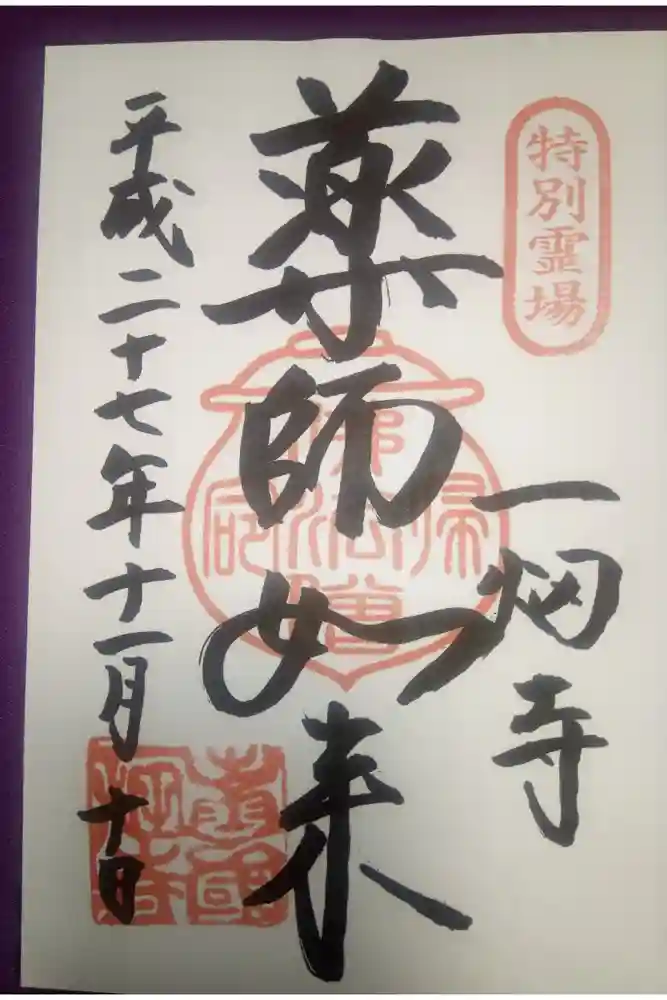 特別霊場
一畑寺
薬師如来
佛法僧
平成二十七年十一月十日